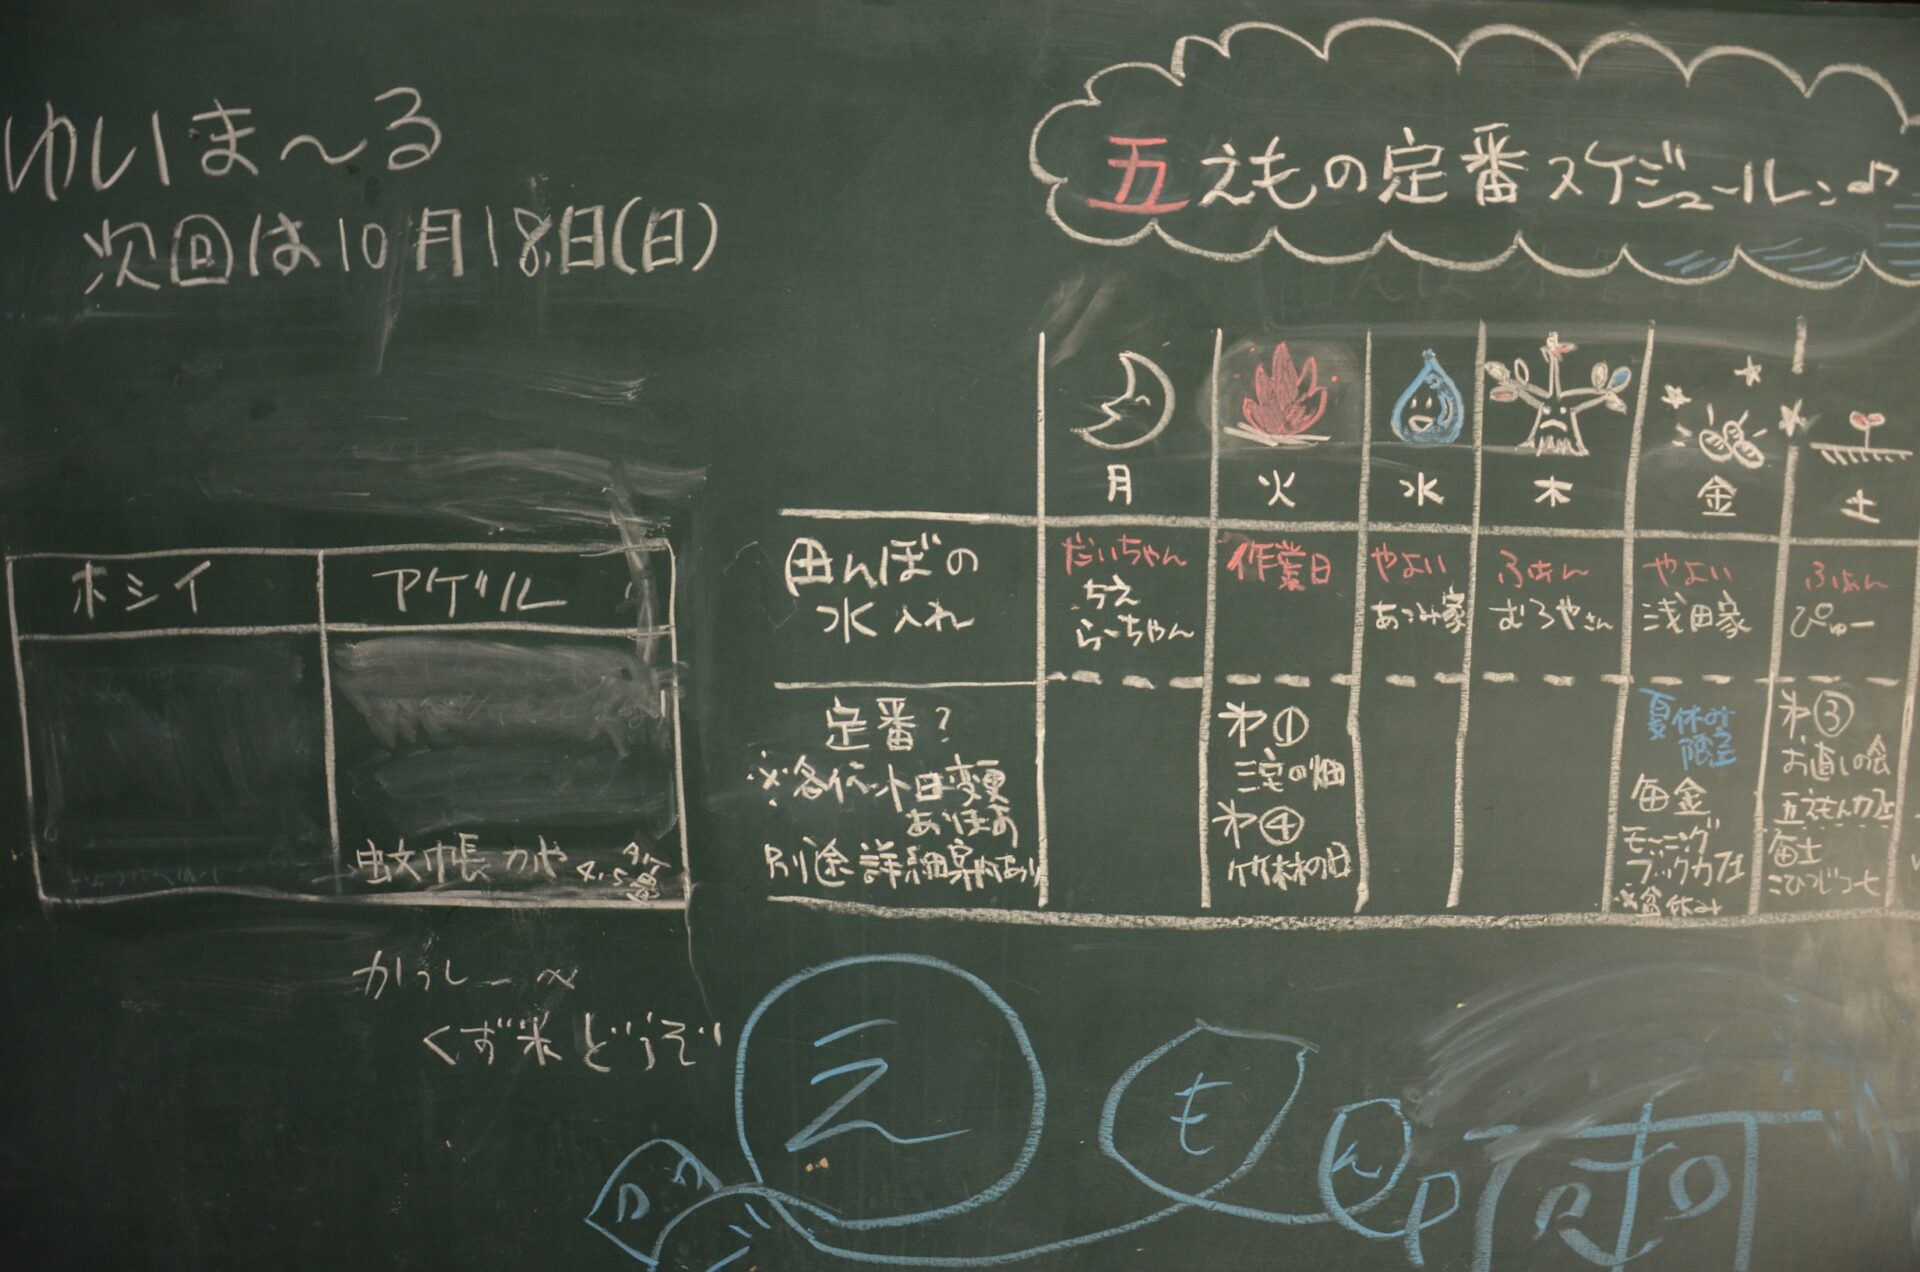 ゆいま〜る
次回は10月18日(日)
ホシイ
アゲル
蚊帳 かや 4.5畳
かっしー〜
くず米どうぞ
五えもの定番スケジュール♪
月
火
水
木
金
土
田んぼの
水入れ
だいちゃん
ちえ
らーちゃん
作業日
やよい
あつみ家
ふぁん
むろやさん
やよい
浅田家
ふぁん
ぴゅー
定番?
※各イベント日変更
あり
別途詳細案内あり
①
の畑
④
竹林の日
夏休み
限定
毎金
モーニング
ブックカフェ
※盆休み
③
お直しの会
五えもんカフェ
毎土
ひつじコーヒ
え
も
ん